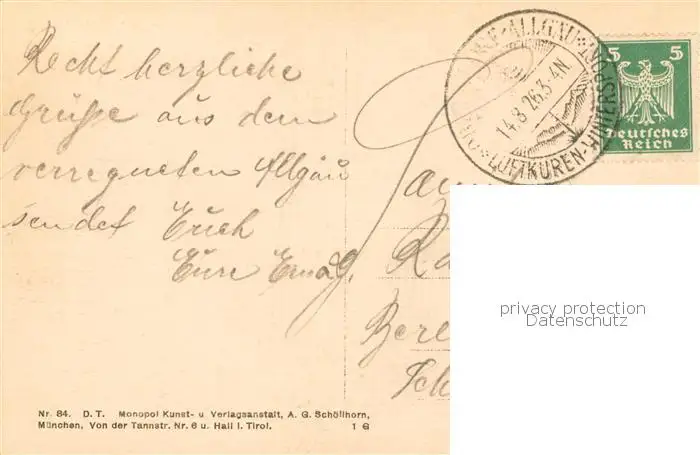 Recht herzliche
Grüße aus dem
verregneten Allgäu
sendet Euch
Eure
5 5
Deutsches
Reich
ALLGÄU
14.8.26.3-4N.
LUFTKUREN-WINTERSP
privacy protection
Datenschutz
Nr. 84. D. T. Monopol Kunst- u Verlagsanstalt, A. G. Schöllhorn,
München, Von der Tannstr. Nr. 6 u. Hall i. Tirol. 1 G